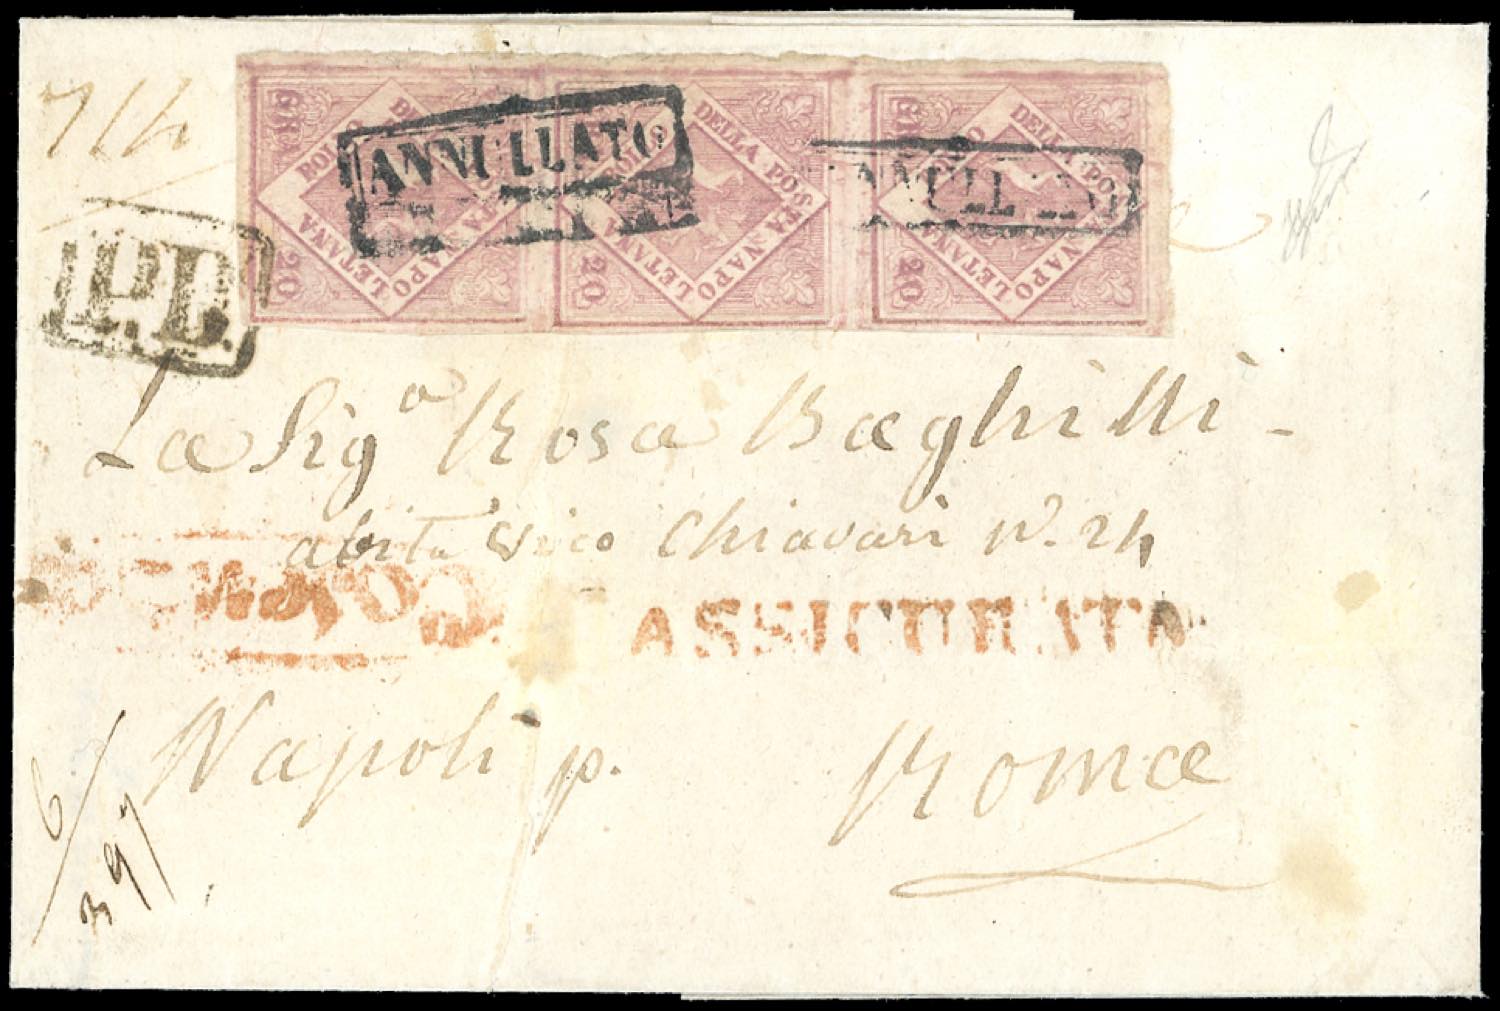 GR. BOLLO DELLA POSTA NAPOLETANA 20
GR. BOLLO DELLA POSTA NAPOLETANA 20
GR. BOLLO DELLA POSTA NAPOLETANA 20
ANNULLATO
ANNULLATO
P.D.
La Sigª Rosa Baghilli
abita Vico Chiavari N. 24
ASSICURATA
Napoli p. Roma
6/397